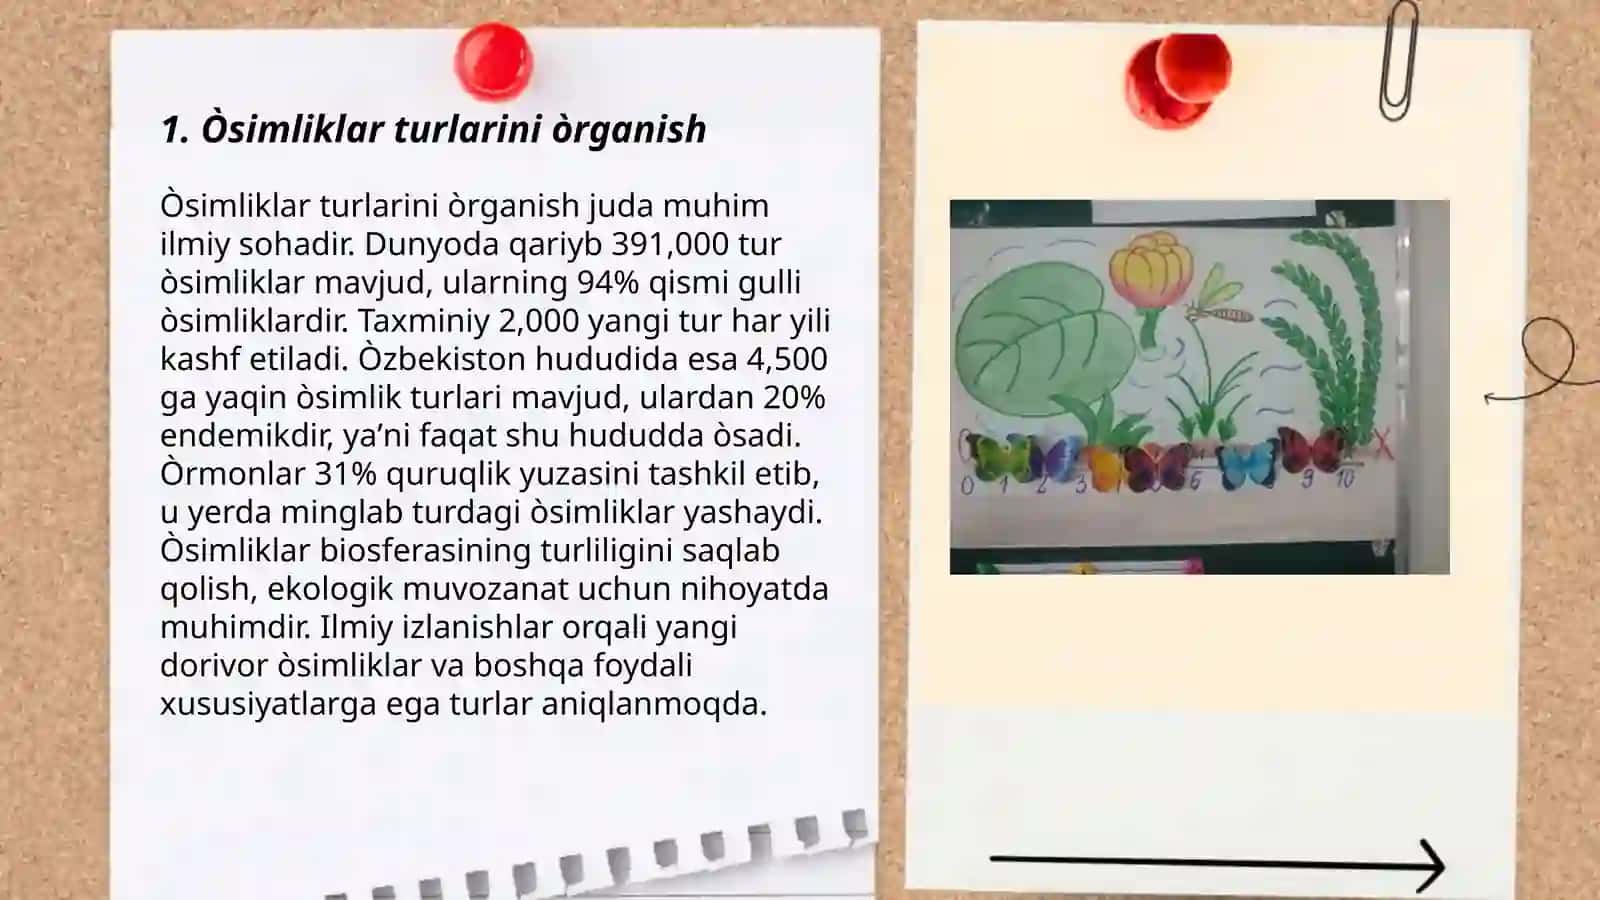 1. Òsimliklar turlarini òrganish
Òsimliklar turlarini òrganish juda muhim
ilmiy sohadir. Dunyoda qariyb 391,000 tur
òsimliklar mavjud, ularning 94% qismi gulli
òsimliklardir. Taxminiy 2,000 yangi tur har yili
kashf etiladi. Òzbekiston hududida esa 4,500
ga yaqin òsimlik turlari mavjud, ulardan 20%
endemikdir, ya’ni faqat shu hududda òsadi.
Òrmonlar 31% quruqlik yuzasini tashkil etib,
u yerda minglab turdagi òsimliklar yashaydi.
Òsimliklar biosferasining turliligini saqlab
qolish, ekologik muvozanat uchun nihoyatda
muhimdir. Ilmiy izlanishlar orqali yangi
dorivor òsimliklar va boshqa foydali
xususiyatlarga ega turlar aniqlanmoqda.
X
0 1 2 3 6 9 10